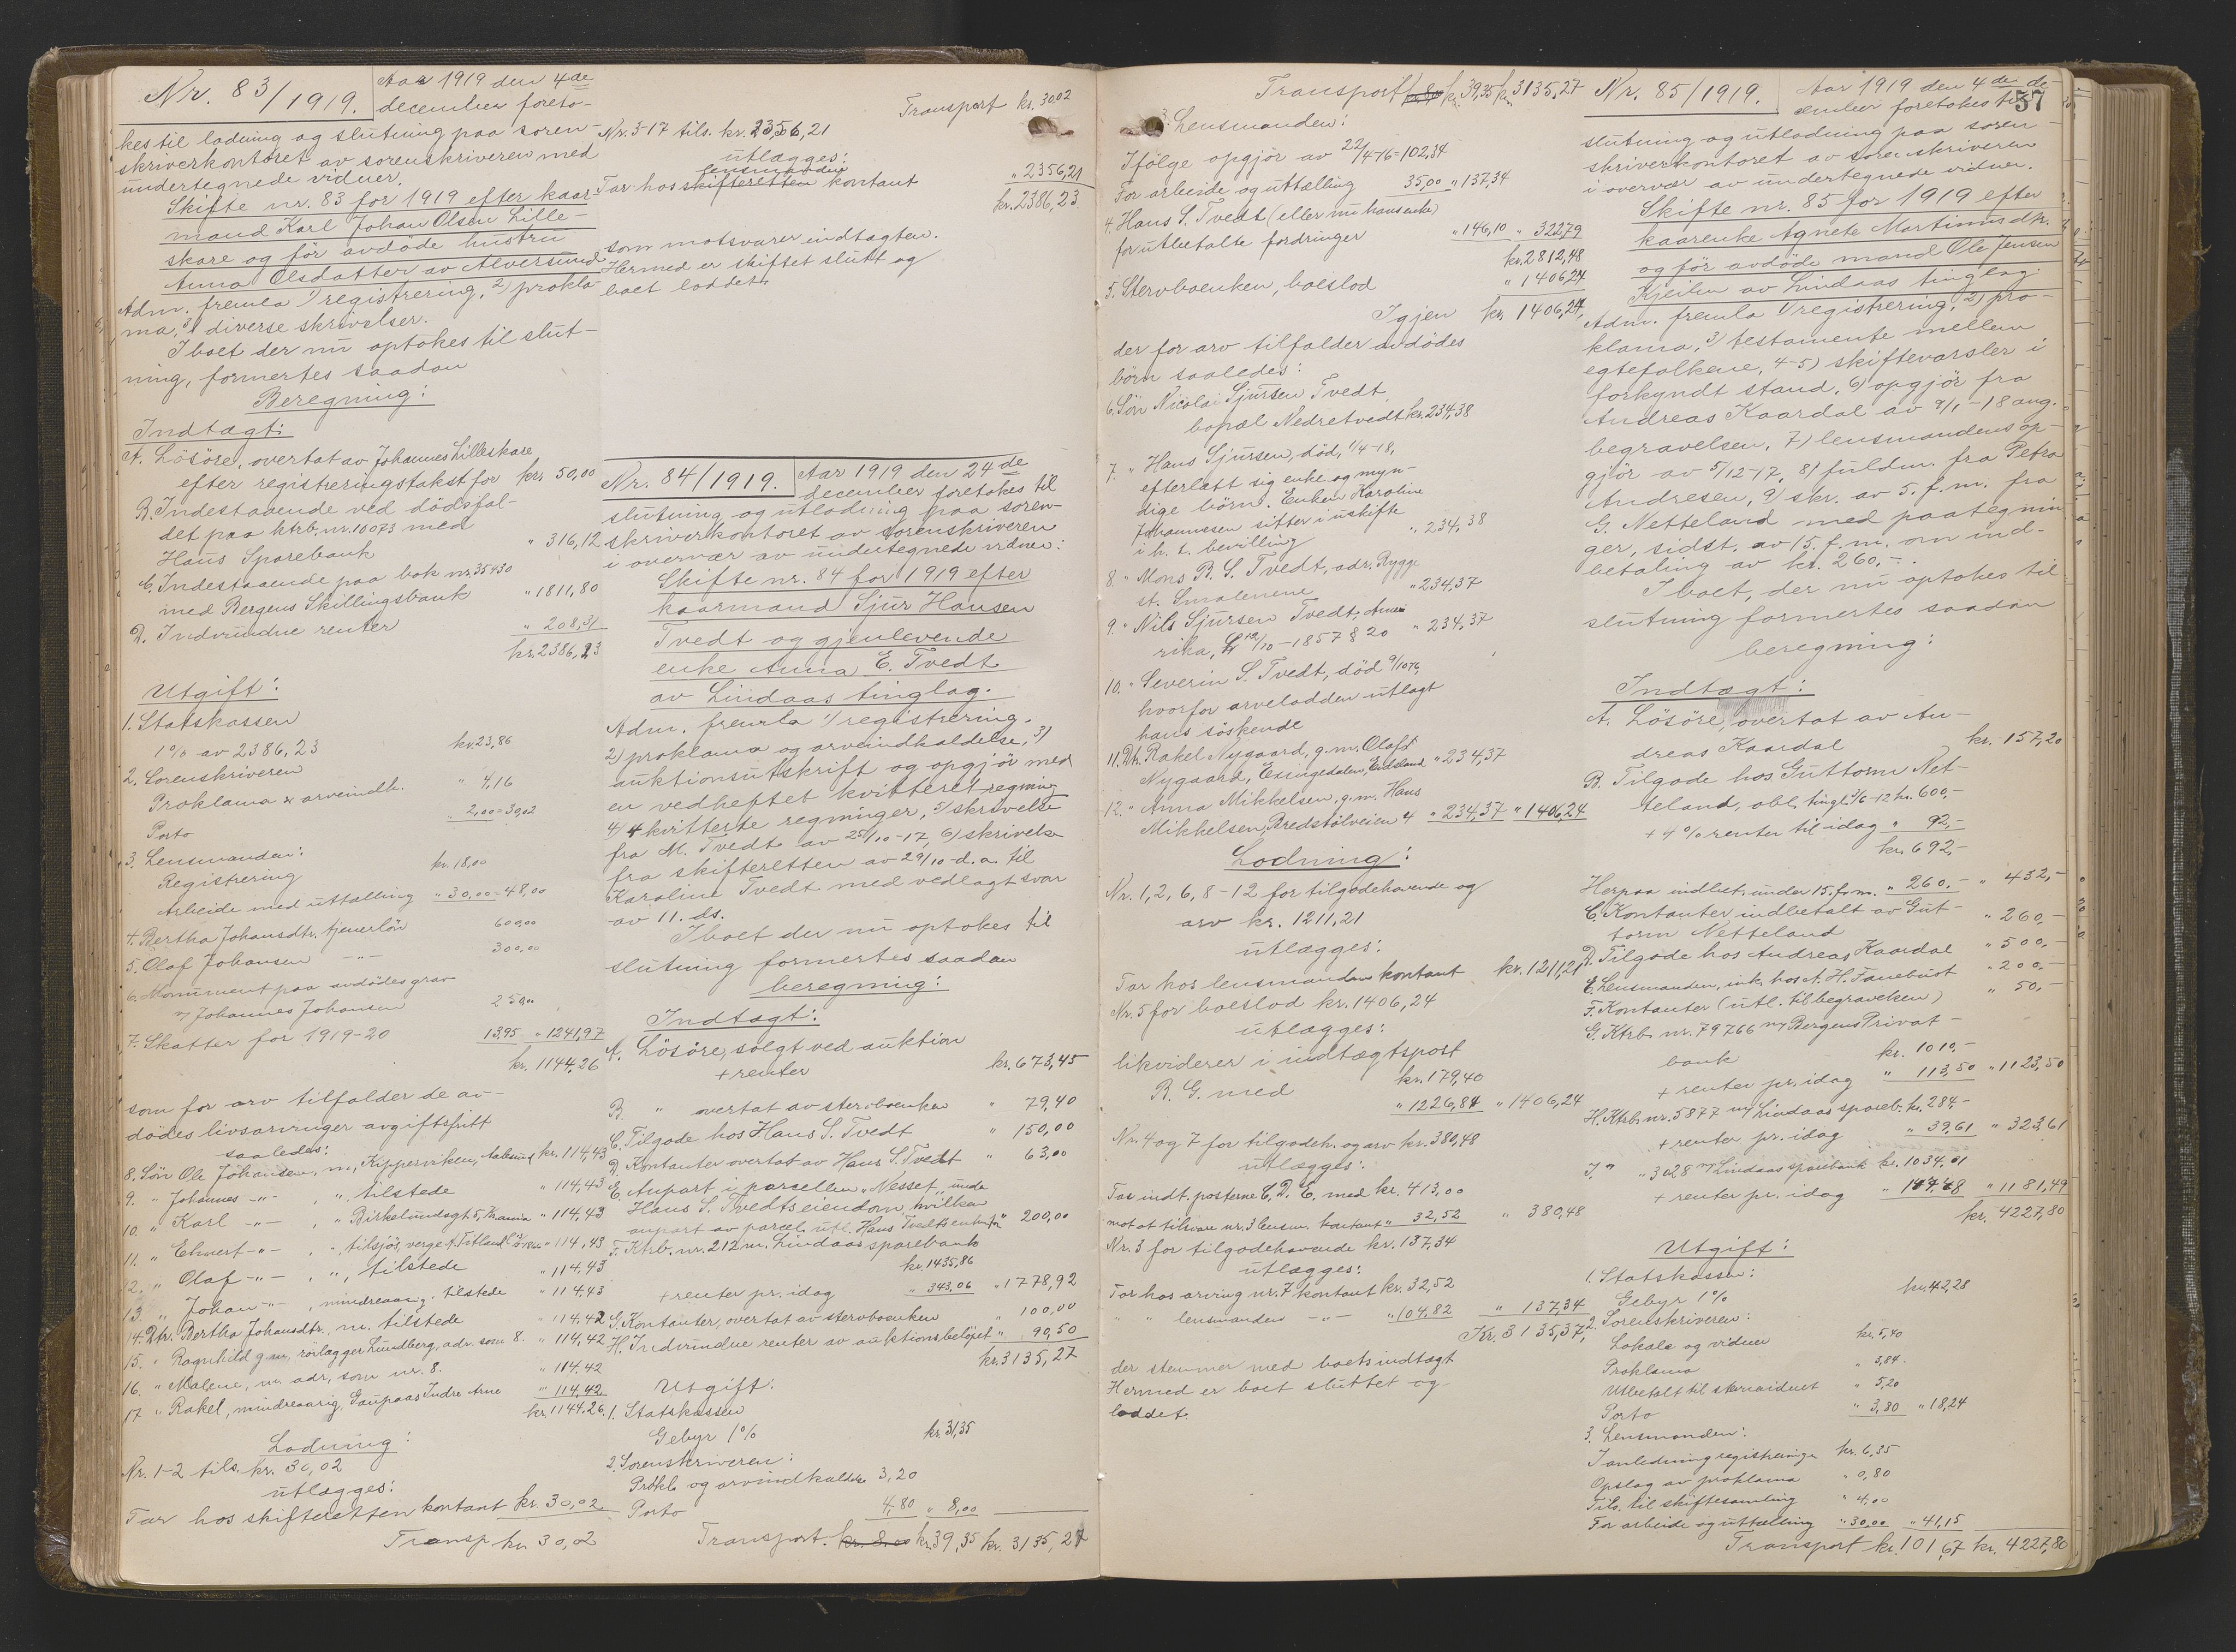 Nr. 83/1919.
Aar 1919 den 4de
december foreto-
kes til lodning og slutning paa soren-
skriverkontoret av sorenskriveren med
undertegnede vidner.
Skifte nr. 83 for 1919 efter kaar-
mand Karl Johan Olsen Lille-
skare og før avdøde hustru
Anna Olsdatter av Alversund
Adm. fremla 1) registrering, 2) prokla-
ma, 3) diverse skrivelser.
I boet der nu optokes til slut-
ning, formertes saadan
Beregning:
Indtægt:
A. Løsøre, overtat av Johannes Lilleskare
efter registreringstakst for kr. 50,00
B. Indestaaende ved dødsfal-
det paa ktrb. nr. 10073 med
Haus Sparebank " 316,12
C. Indestaaende paa bok nr. 35430
med Bergens Skillingsbank " 1811,80
D. Indvundne renter " 208,31
kr. 2386,23
Utgift:
1. Statskassen
1% av 2386,23 kr. 23,86
2. Sorenskriveren
Proklama & arveindk. " 4,16
Porto " 2,00 = 30,02
3. Lensmanden:
Registrering kr. 18,00
Arbeide med uttælling " 30,00 = 48,00
4. Bertha Johansdtr. tjenerløn 600,00
5. Olaf Johansen -"- 300,00
6. Monument paa avdødes grav
v/ Johannes Johansen 250,00
7. Skatter for 1919-20 13,95 " 1241,97
kr. 1144,26
som for arv tilfalder de av-
dødes livsarvinger avgiftsfrit
saaledes:
8. Søn Ole Johansen, m., Kipperviken, Aalesund kr. 114,43
9. " Johannes -"- , ", tilstede " 114,43
10. " Karl -"- , " Birkelundsgt 5, Kr.ania " 114,43
11. " Ehnert -"- , " tilsjøs, verge A. Titland " 114,43
12. " Olaf -"- , ", tilstede " 114,43
13. " Johan -"- , mindreaarig, tilstede " 114,43
14. Dtr. Bertha Johansdtr., m. tilstede " 114,42
15. " Ragnhild g.m. rørlægger Lundberg, adr. som 8. " 114,42
16. " Malene, m. adr. som nr. 8. " 114,42
17 " Rakel, mindreaarig, Gaupaas Indre Arne " 114,42
kr. 1144,26.
Lodning:
Nr. 1-2 tils. kr. 30,02
utlægges:
Tar hos skifteretten kontant kr. 30,02
Transp. kr. 30,02
Transport kr. 30,02
Nr. 3-17 tils. kr. 2356,21
utlægges:
lensmanden
Tar hos skifteretten kontant " 2356,21
kr. 2386,23
som motsvarer indtægten.
Hermed er skiftet slutt og
boet loddet.
Nr. 84/1919.
Aar 1919 den 24de
december foretokes til
slutning og utlodning paa soren-
skriverkontoret av sorenskriveren
i overvær av undertegnede vidner:
Skifte nr. 84 for 1919 efter
kaarmand Sjur Hansen
Tvedt og gjenlevende
enke Anna E. Tvedt
av Lindaas tinglag.
Adm. fremla 1) registrering.
2) proklama og arveindkaldelse, 3)
auktionsutskrift og opgjør med
en vedheftet kvitteret regning
4) 4 kvitterte regninger, 5) skrivelse
fra M. Tvedt av 25/10-17, 6) skrivelse
fra skifteretten av 29/10-d.a. til
Karoline Tvedt med vedlagt svar
av 11. ds.
I boet der nu optokes til
slutning formertes saadan
beregning:
Indtægt:
A. Løsøre, solgt ved auktion
+ renter kr. 673,45
B. " overtat av stervboenken " 79,40
C. Tilgode hos Hans S. Tvedt " 150,00
D. Kontanter overtat av Hans S. Tvedt " 63,00
E. Anpart i parcellen "Nesset" under
Hans S. Tvedts eiendom hvilken
anpart av parcel utl. Hans Tvedts enke for " 200,00
F. Ktrb. nr. 212 m. Lindaas sparebank
kr. 1435,86
+ renter pr. idag " 343,06 " 1778,92
G. Kontanter, overtat av stervboenken " 100,00
H. Indvundne renter av auktionsbeløpet " 90,50
kr. 3135,27
Utgift:
1. Statskassen
Gebyr 1% kr. 31,35
2. Sorenskriveren:
Prokl. og arvindkaldelse 3,20
Porto 4,80 " 8,00
Transport. kr. 8.00 kr. 39,35 kr. 3135,27
Transport kr. 39,35 kr. 3135,27
3. Lensmanden:
Ifølge opgjør av 22/4-16 = 102,34
For arbeide og uttælling 35,00 " 137,34
4. Hans S. Tvedt (eller nu hans enke)
for utbetalte fordringer " 146,10 " 322,79
kr. 2812,48
5. Stervboenken, boeslod " 1406,24
Igjen kr. 1406,24,
der for arv tilfalder avdødes
børn saaledes:
6. Søn Nicolai Sjursen Tvedt,
bopæl Nedretvedt kr. 234,38
7. " Hans Sjursen, død, 1/4-18,
efterlatt sig enke og myn-
dige børn. Enken Karoline
Johannesen sitter i uskifte
i h. t. bevilling " 234,38
8. " Mons B. S. Tvedt, adr. Rygge
st. Smalenene " 234,37
9. " Nils Sjursen Tvedt, Ame-
rika, 12/10-1857 § 20 " 234,37
10. " Severin S. Tvedt, død 9/10 76,
hvorfor arvelodden utlagt
hans søskende
11. Dtr. Rakel Nygaard, g.m. Olaf
Nygaard, Exingedalen, " 234,37
12. " Anna Mikkelsen, g.m. Hans
Mikkelsen, Bredstølveien 4 " 234,37 " 1406,24
Lodning:
Nr. 1, 2, 6, 8-12 for tilgodehavende og
arv kr. 1211,21
utlægges:
Tar hos lensmanden kontant kr. 1211,21
Nr. 5 for boeslod kr. 1406,24
utlægges:
likviderer i indtægtspost
B. G. med kr. 179,40
" 1226,84 " 1406,24
Nr. 4 og 7 for tilgodeh. og arv kr. 380,48
utlægges:
Tar indt. posterne C. D. E. med kr. 413,00
mot at tilsvare nr. 3 lensm. kontant " 32,52 " 380,48
Nr. 3 for tilgodehavende kr. 137,34
utlægges:
Tar hos arving nr. 7 kontant kr. 32,52
" " lensmanden -"- " 104,82 " 137,34
Kr. 3135,37,
der stemmer med boets indtægt
Hermed er boet sluttet og
loddet.
Nr. 85/1919.
57
Aar 1919 den 4de de-
sember foretokes til
slutning og utlodning paa soren-
skriverkontoret av sorenskriveren
i overvær av undertegnede vidner.
Skifte nr. 85 for 1919 efter
kaarenke Agnete Martinusdtr.
og før avdøde mand Ole Jensen
Kjeilen av Lindaas tinglag.
Adm. fremla 1) registrering, 2) pro-
klama, 3) testamente mellem
egtefolkene, 4-5) skiftevarsler i
forkyndt stand, 6) opgjør fra
Andreas Kaardal av 9/1-18 ang.
begravelsen, 7) lensmandens op-
gjør av 5/12-17, 8) fuldm. fra Petra
Andresen, 9) skr. av 5. f.m. fra
G. Netteland med paategnin-
ger, sidst. av 15. f.m. om ind-
betaling av kr. 260,-.
I boet, der nu optokes til
slutning formertes saadan
beregning:
Indtægt:
A. Løsøre, overtat av An-
dreas Kaardal kr. 157,20
B. Tilgode hos Guttorm Net-
teland, obl. tingl. 3/6-12 kr. 600,-
+ 4% renter til idag " 92,-
kr. 692,-
Herpaa indbet. under 15. f.m. " 260.- " 432,-
C. Kontanter indbetalt av Gut-
torm Netteland " 260,-
D. Tilgode hos Andreas Kaardal " 500,-
E. Lensmanden, ink. hos A. H. Fanebust " 200,-
F. Kontanter (utl. til begravelsen) " 50,-
G. Ktrb. nr. 79766 m/ Bergens Privat-
bank kr. 1010,-
+ renter pr. idag " 113,50 " 1123,50
H. Ktrb. nr. 5877 m/ Lindaas spareb. kr. 284,-
+ renter pr. idag " 39,61 " 323,61
I. " " 3028 m/ Lindaas sparebank kr. 1034,01
+ renter pr. idag " 147,48 " 1181,49
kr. 4227,80
Utgift:
1. Statskassen:
Gebyr 1% kr. 42,28
2. Sorenskriveren:
Lokale og vidner kr. 5,40
Proklama " 3,84.
Utbetalt til " 5,20
Porto " 3,80 " 18,24
3. Lensmanden:
I anledning registreringe kr. 6,35
Opslag av proklama " 0,80
Tils. til skiftesamling " 4,00
For arbeide og uttælling " 30,00 " 41,15
Transport kr. 101,67 kr. 4227,80